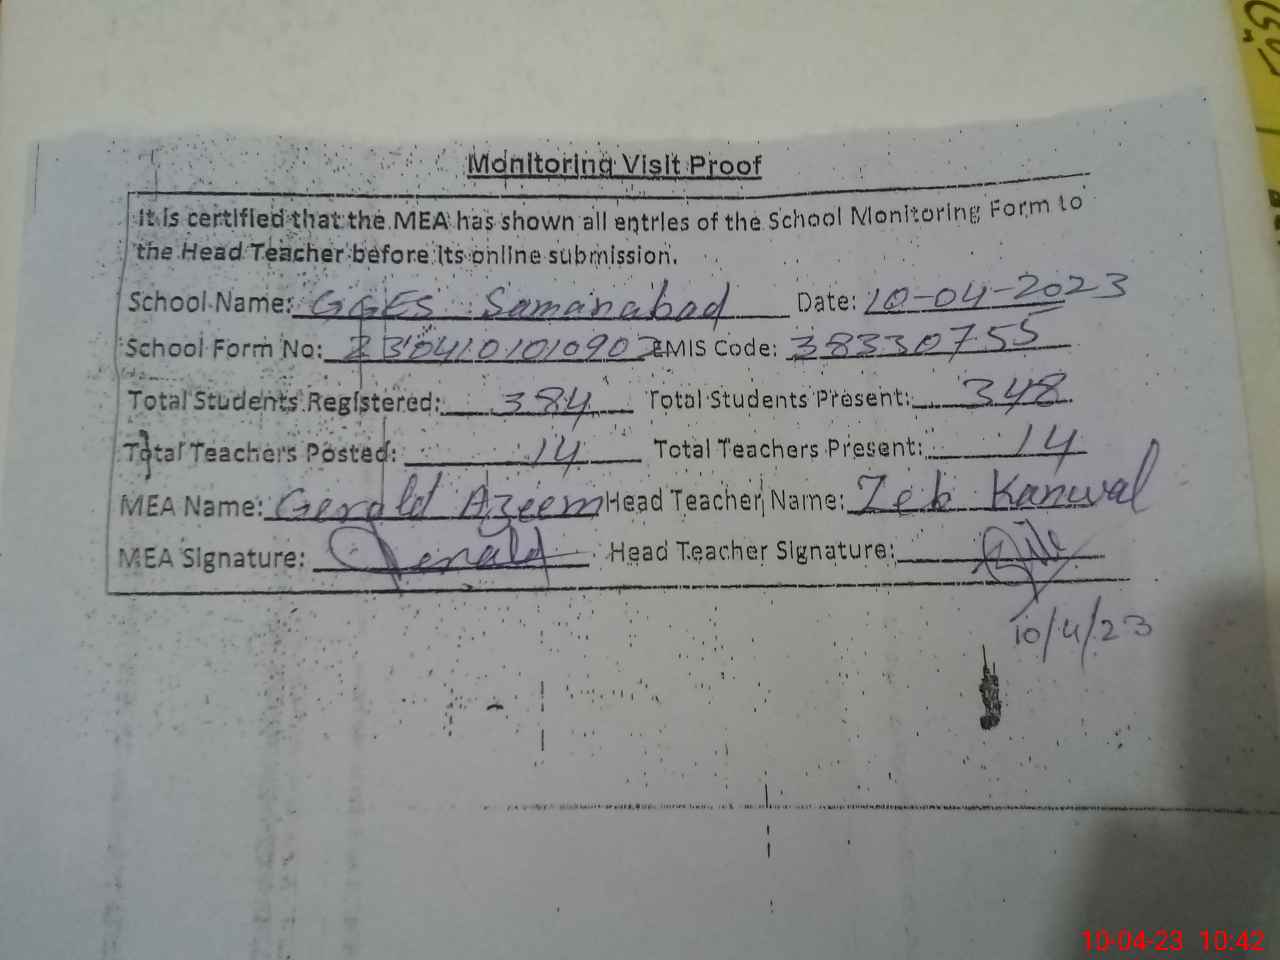 Monitoring Visit Proof
It is certified that the MEA has shown all entries of the School Monitoring Form to
the Head Teacher before its online submission.
School Name: GGES Samanabad Date: 10-04-2023
School Form No: 2304101010902 EMIS Code: 38330755
Total Students Registered: 384 Total Students Present: 348
Total Teachers Posted: 14 Total Teachers Present: 14
MEA Name: Gerald Azeem Head Teacher Name: Zeb Kanwal
MEA Signature: Gerald Head Teacher Signature:
10/4/23
10-04-23 10:42